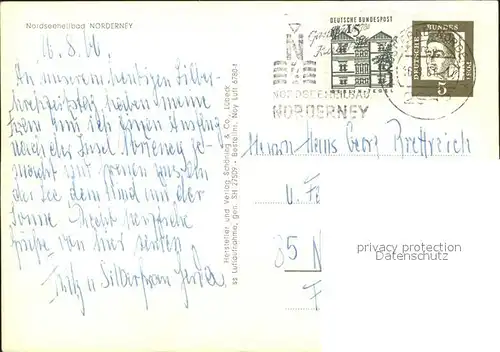 Nordseeheilbad NORDERNEY
16.8.66
An unserem heutigen Silber-
hochzeitstag haben meine
Frau und ich einen Ausflug
nach der Insel Norderney ge-
macht und
der See, dem Wind und der
Sonne Recht herzliche
Grüße von hier senden
Fritz u Silberfrau
Hersteller und Verlag Schöning & Co., Lübeck
ss Luftaufnahme, gen. SH 27309 - Bestellnr. Ney Luft 6780-1
DEUTSCHE BUNDESPOST
15
BERLIN
NORDSEEHEILBAD
NORDERNEY
DEUTSCHE
BUNDES
POST
5
Herrn Hans Georg Brettreich
u. Fr
85 N
F
privacy protection
Datenschutz